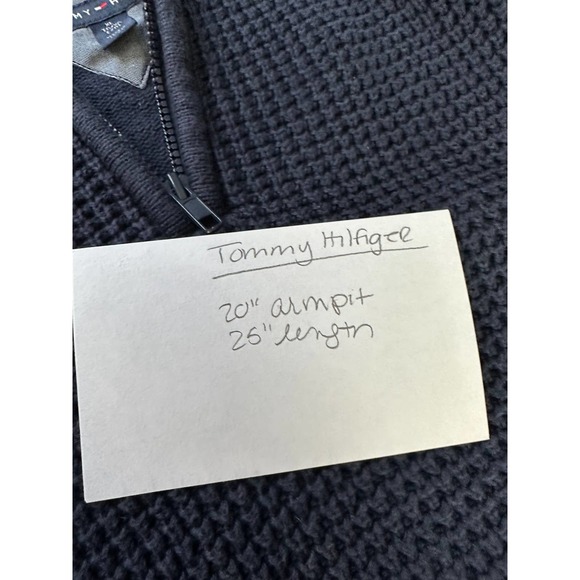 MY H
M
Tommy Hilfiger
20" armpit
25" length